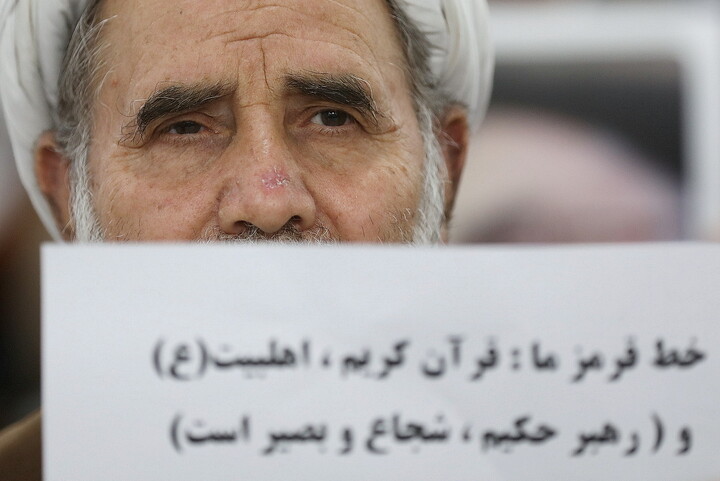 خط قرمز ما : قرآن کریم ، اهلبیت(ع)
و ( رهبر حکیم ، شجاع و بصیر است)